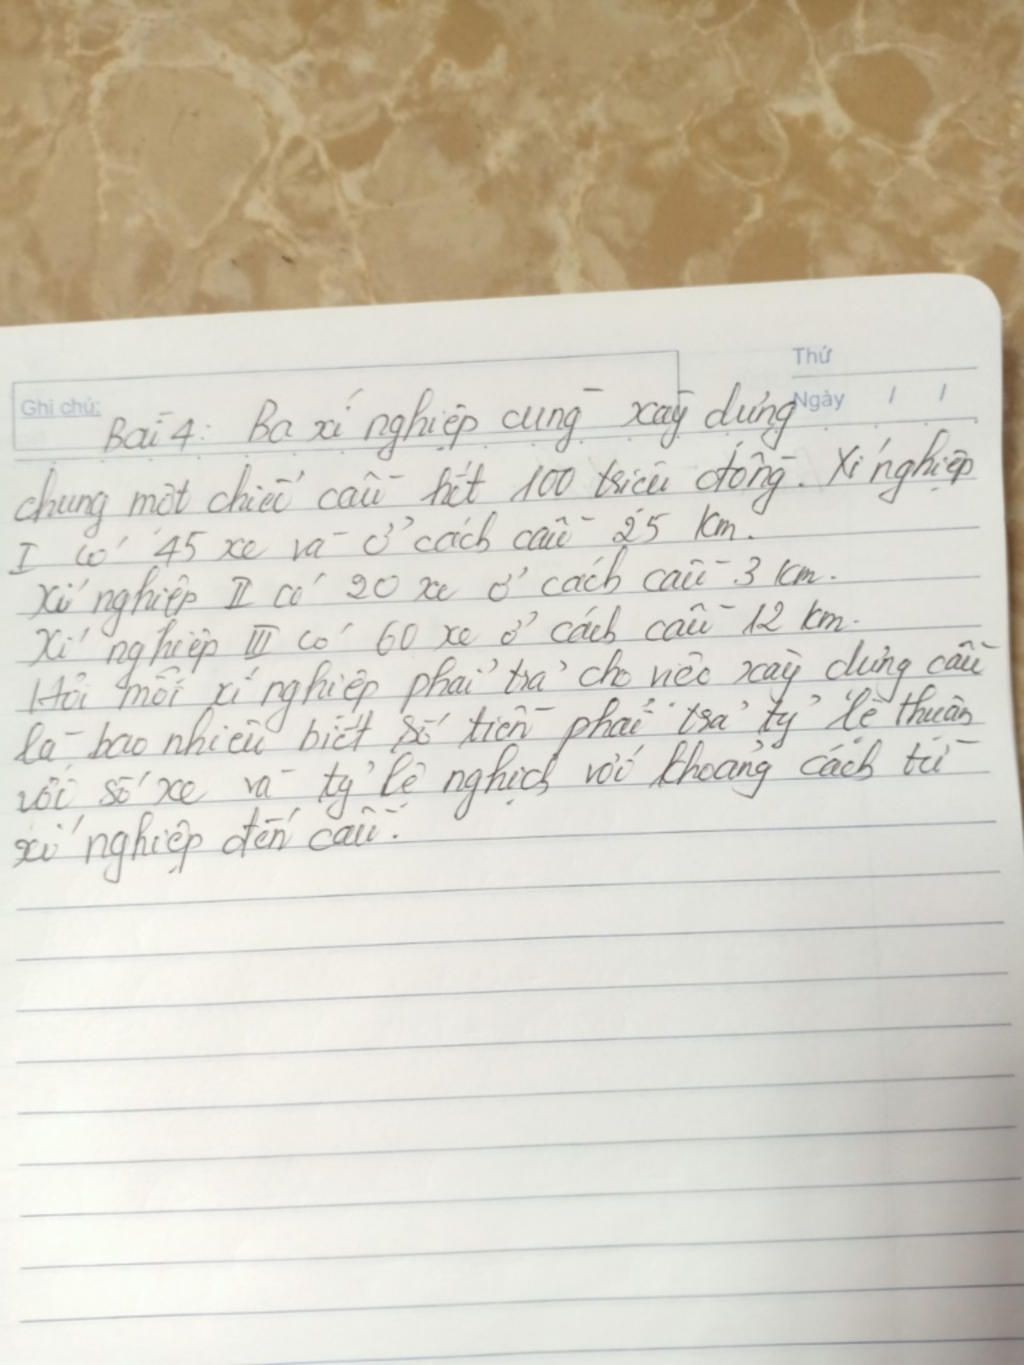 Thứ
Ghi chú:
Ngày / /
Bài 4: Ba xí nghiệp cùng xây dựng
chung một chiếc cầu hết 100 triệu đồng. Xí nghiệp
I có 45 xe và ở cách cầu 25 km.
Xí nghiệp II có 20 xe ở cách cầu 3 km.
Xí nghiệp III có 60 xe ở cách cầu 12 km.
Hỏi mỗi xí nghiệp phải trả cho việc xây dựng cầu
là bao nhiêu biết số tiền phải trả tỷ lệ thuận
với số xe và tỷ lệ nghịch với khoảng cách từ
xí nghiệp đến cầu.